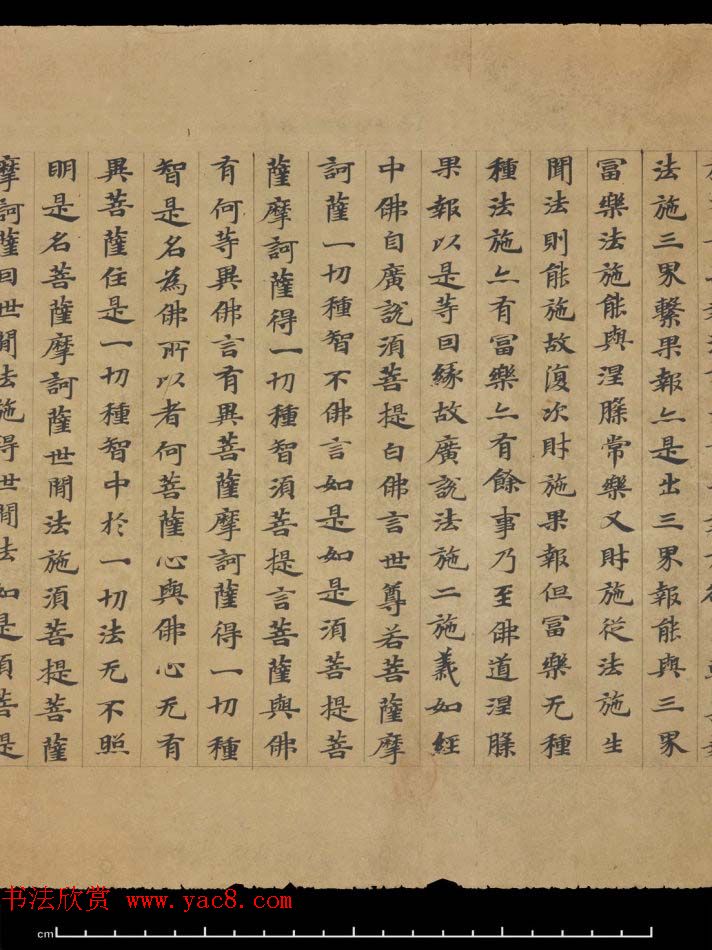 法施三界繫果報亦是出三界報能與三界
冨樂法施能與涅槃常樂又財施從法施生
聞法則能施故復次財施果報但冨樂无種
種法施亦有冨樂亦有餘事乃至佛道涅槃
果報以是等因緣故廣說法施二施義如經
中佛自廣說須菩提白佛言世尊若菩薩摩
訶薩一切種智不佛言如是如是須菩提菩
薩摩訶薩得一切種智須菩提言菩薩與佛
有何等異佛言有異菩薩摩訶薩得一切種
智是名為佛所以者何菩薩心與佛心无有
異菩薩住是一切種智中於一切法无不照
明是名菩薩摩訶薩世閒法施須菩提菩薩
摩訶薩因世閒法施得世閒法如是須菩提
书法欣赏 www.yac8.com
cm